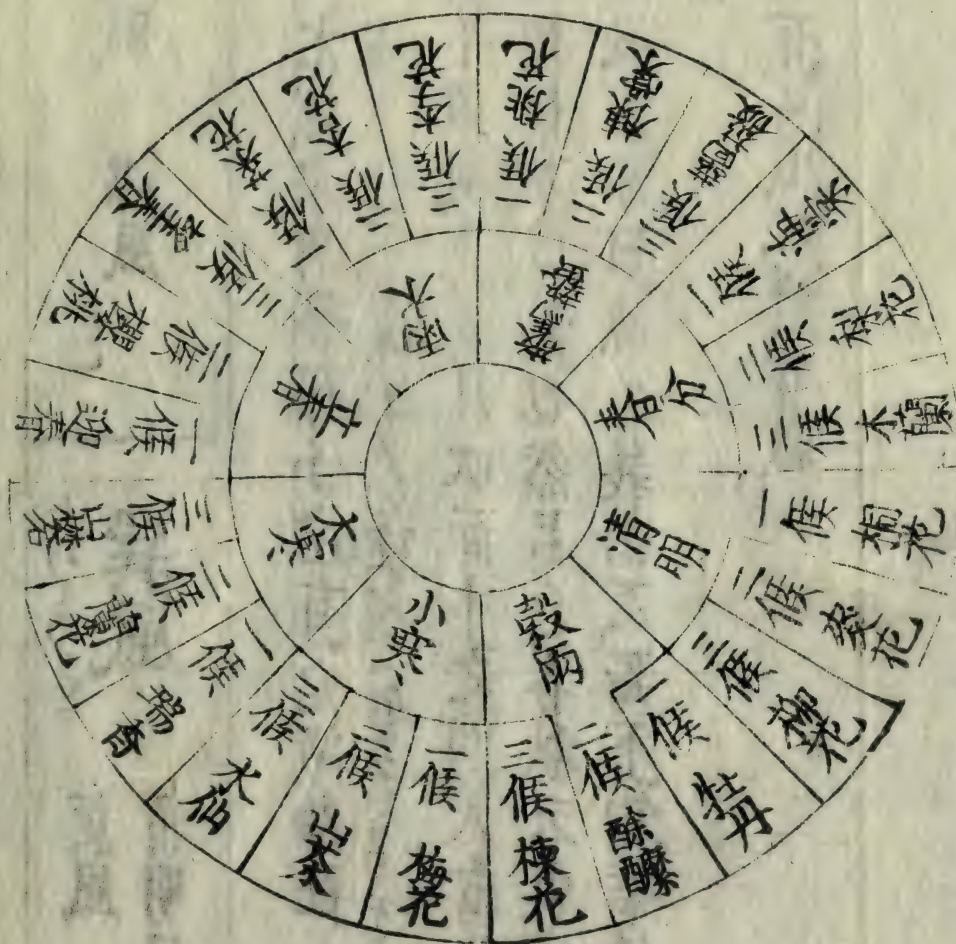 小寒
一候 梅花
二候 山茶
三候 水仙
大寒
一候 瑞香
二候 蘭花
三候 山礬
立春
一候 迎春
二候 櫻桃
三候 望春
雨水
一候 花
二候 杏花
三候 李花
驚蟄
一候 桃花
二候 棣棠
三候 薔薇
春分
一候 海棠
二候 梨花
三候 木蘭
清明
一候 桐花
二候 花
三候 柳花
穀雨
一候 牡丹
二候 酴醾
三候 楝花